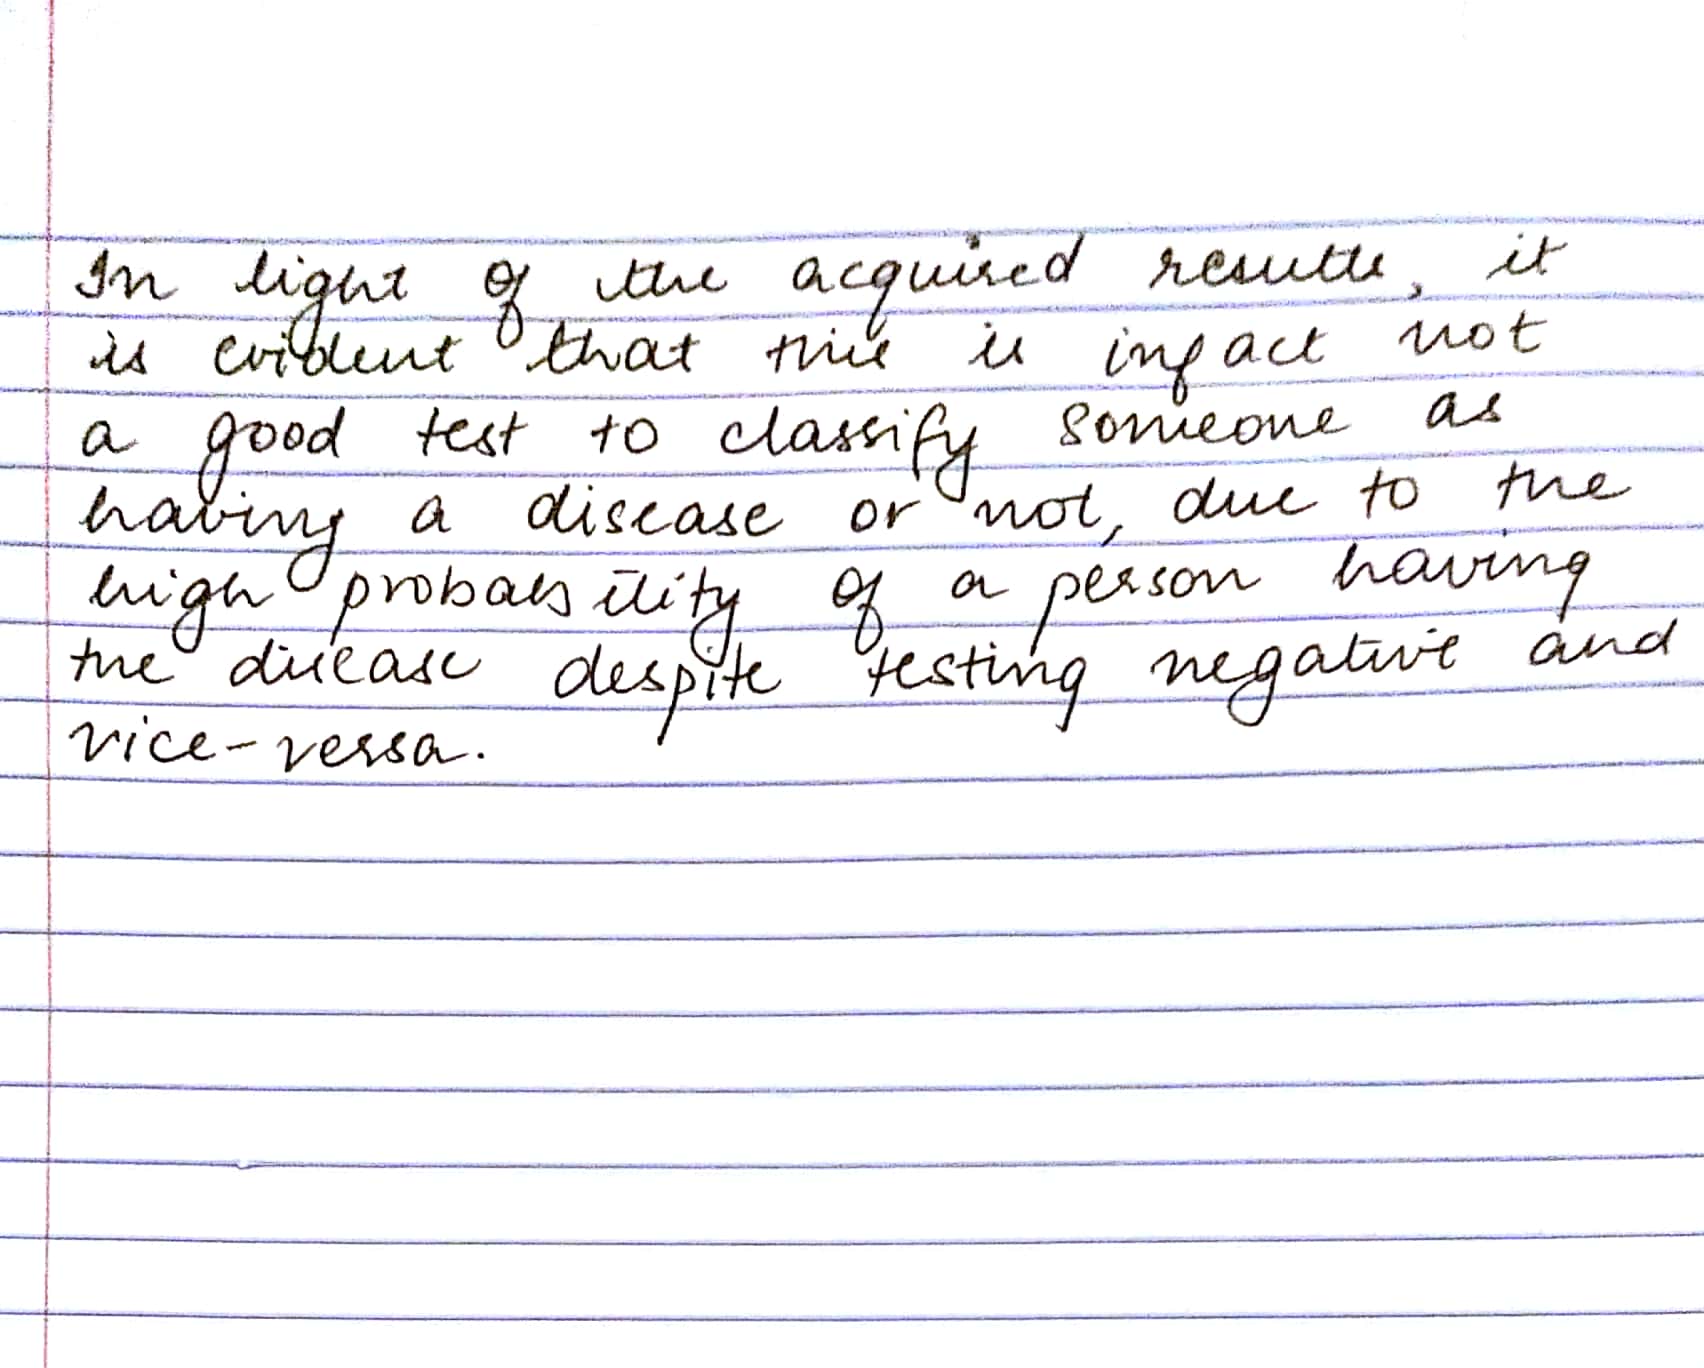 In light of the acquired results, it
is evident that this is infact not
a good test to classify someone as
having a disease or not, due to the
high probability of a person having
the disease despite testing negative and
vice-versa.